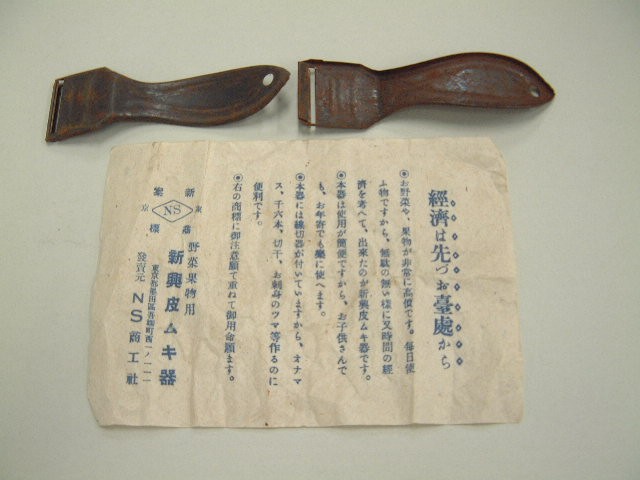 經濟は先づお臺處から
◉お野菜や、果物が非常に高價です。每日使
ふ物ですから、無駄の無い樣に又時間の經
濟を考へて、出來たのが新興皮ムキ器です。
◉本器は使用が簡便ですから、お子供さんで
も、お年寄でも樂に使へます。
◉本器には線切器が付いていますから、オナマ
ス、千六本、切干、お刺身のツマ等作るのに
便利です。
◉右の商標に御注意願て重ねて御用命願ます。
新案
NS
東京
商標
野菜果物用
新興皮ムキ器
東京都墨田區吾嬬町西一ノ一一
發賣元 NS商工社